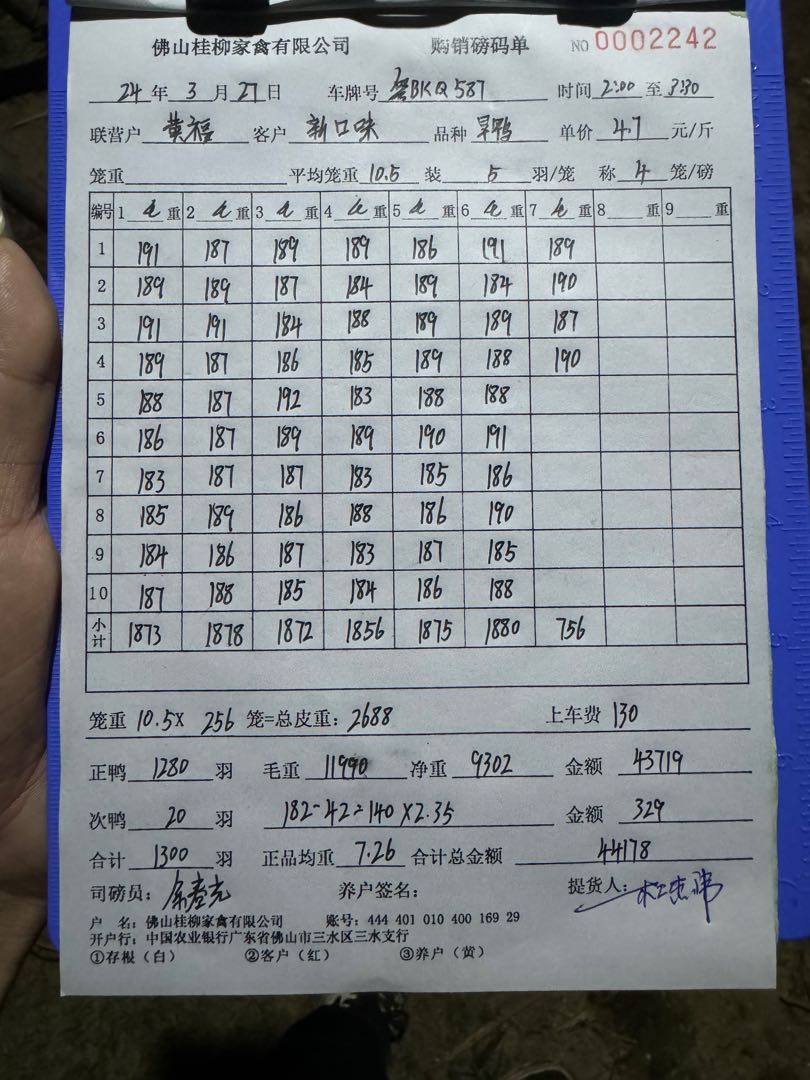 佛山桂柳家禽有限公司 购销磅码单 NO 0002242
24年3月27日 车牌号 粤BKQ587 时间 2:00至3:30
联营户 黄福 客户 新口味 品种 旱鸭 单价 4.7 元/斤
笼重 平均笼重 10.5 装 5 羽/笼 称 4 笼/磅
编号 1 重 2 重 3 重 4 重 5 重 6 重 7 重 8 重 9 重
1 191 187 189 189 186 191 189
2 189 189 187 184 189 184 190
3 191 191 184 188 189 189 187
4 189 187 186 185 189 188 190
5 188 187 192 183 188 188
6 186 187 189 189 190 191
7 183 187 187 183 185 186
8 185 189 186 188 186 190
9 184 186 187 183 187 185
10 187 188 185 184 186 188
小计 1873 1878 1872 1856 1875 1880 756
笼重 10.5× 256 笼=总皮重:2688 上车费 130
正鸭 1280 羽 毛重 11990 净重 9302 金额 43719
次鸭 20 羽 182-42=140×2.35 金额 329
合计 1300 羽 正品均重 7.26 合计总金额 44178
司磅员: 养户签名: 提货人:
户 名:佛山桂柳家禽有限公司 账号:444 401 010 400 169 29
开户行:中国农业银行广东省佛山市三水区三水支行
①存根(白) ②客户(红) ③养户(黄)